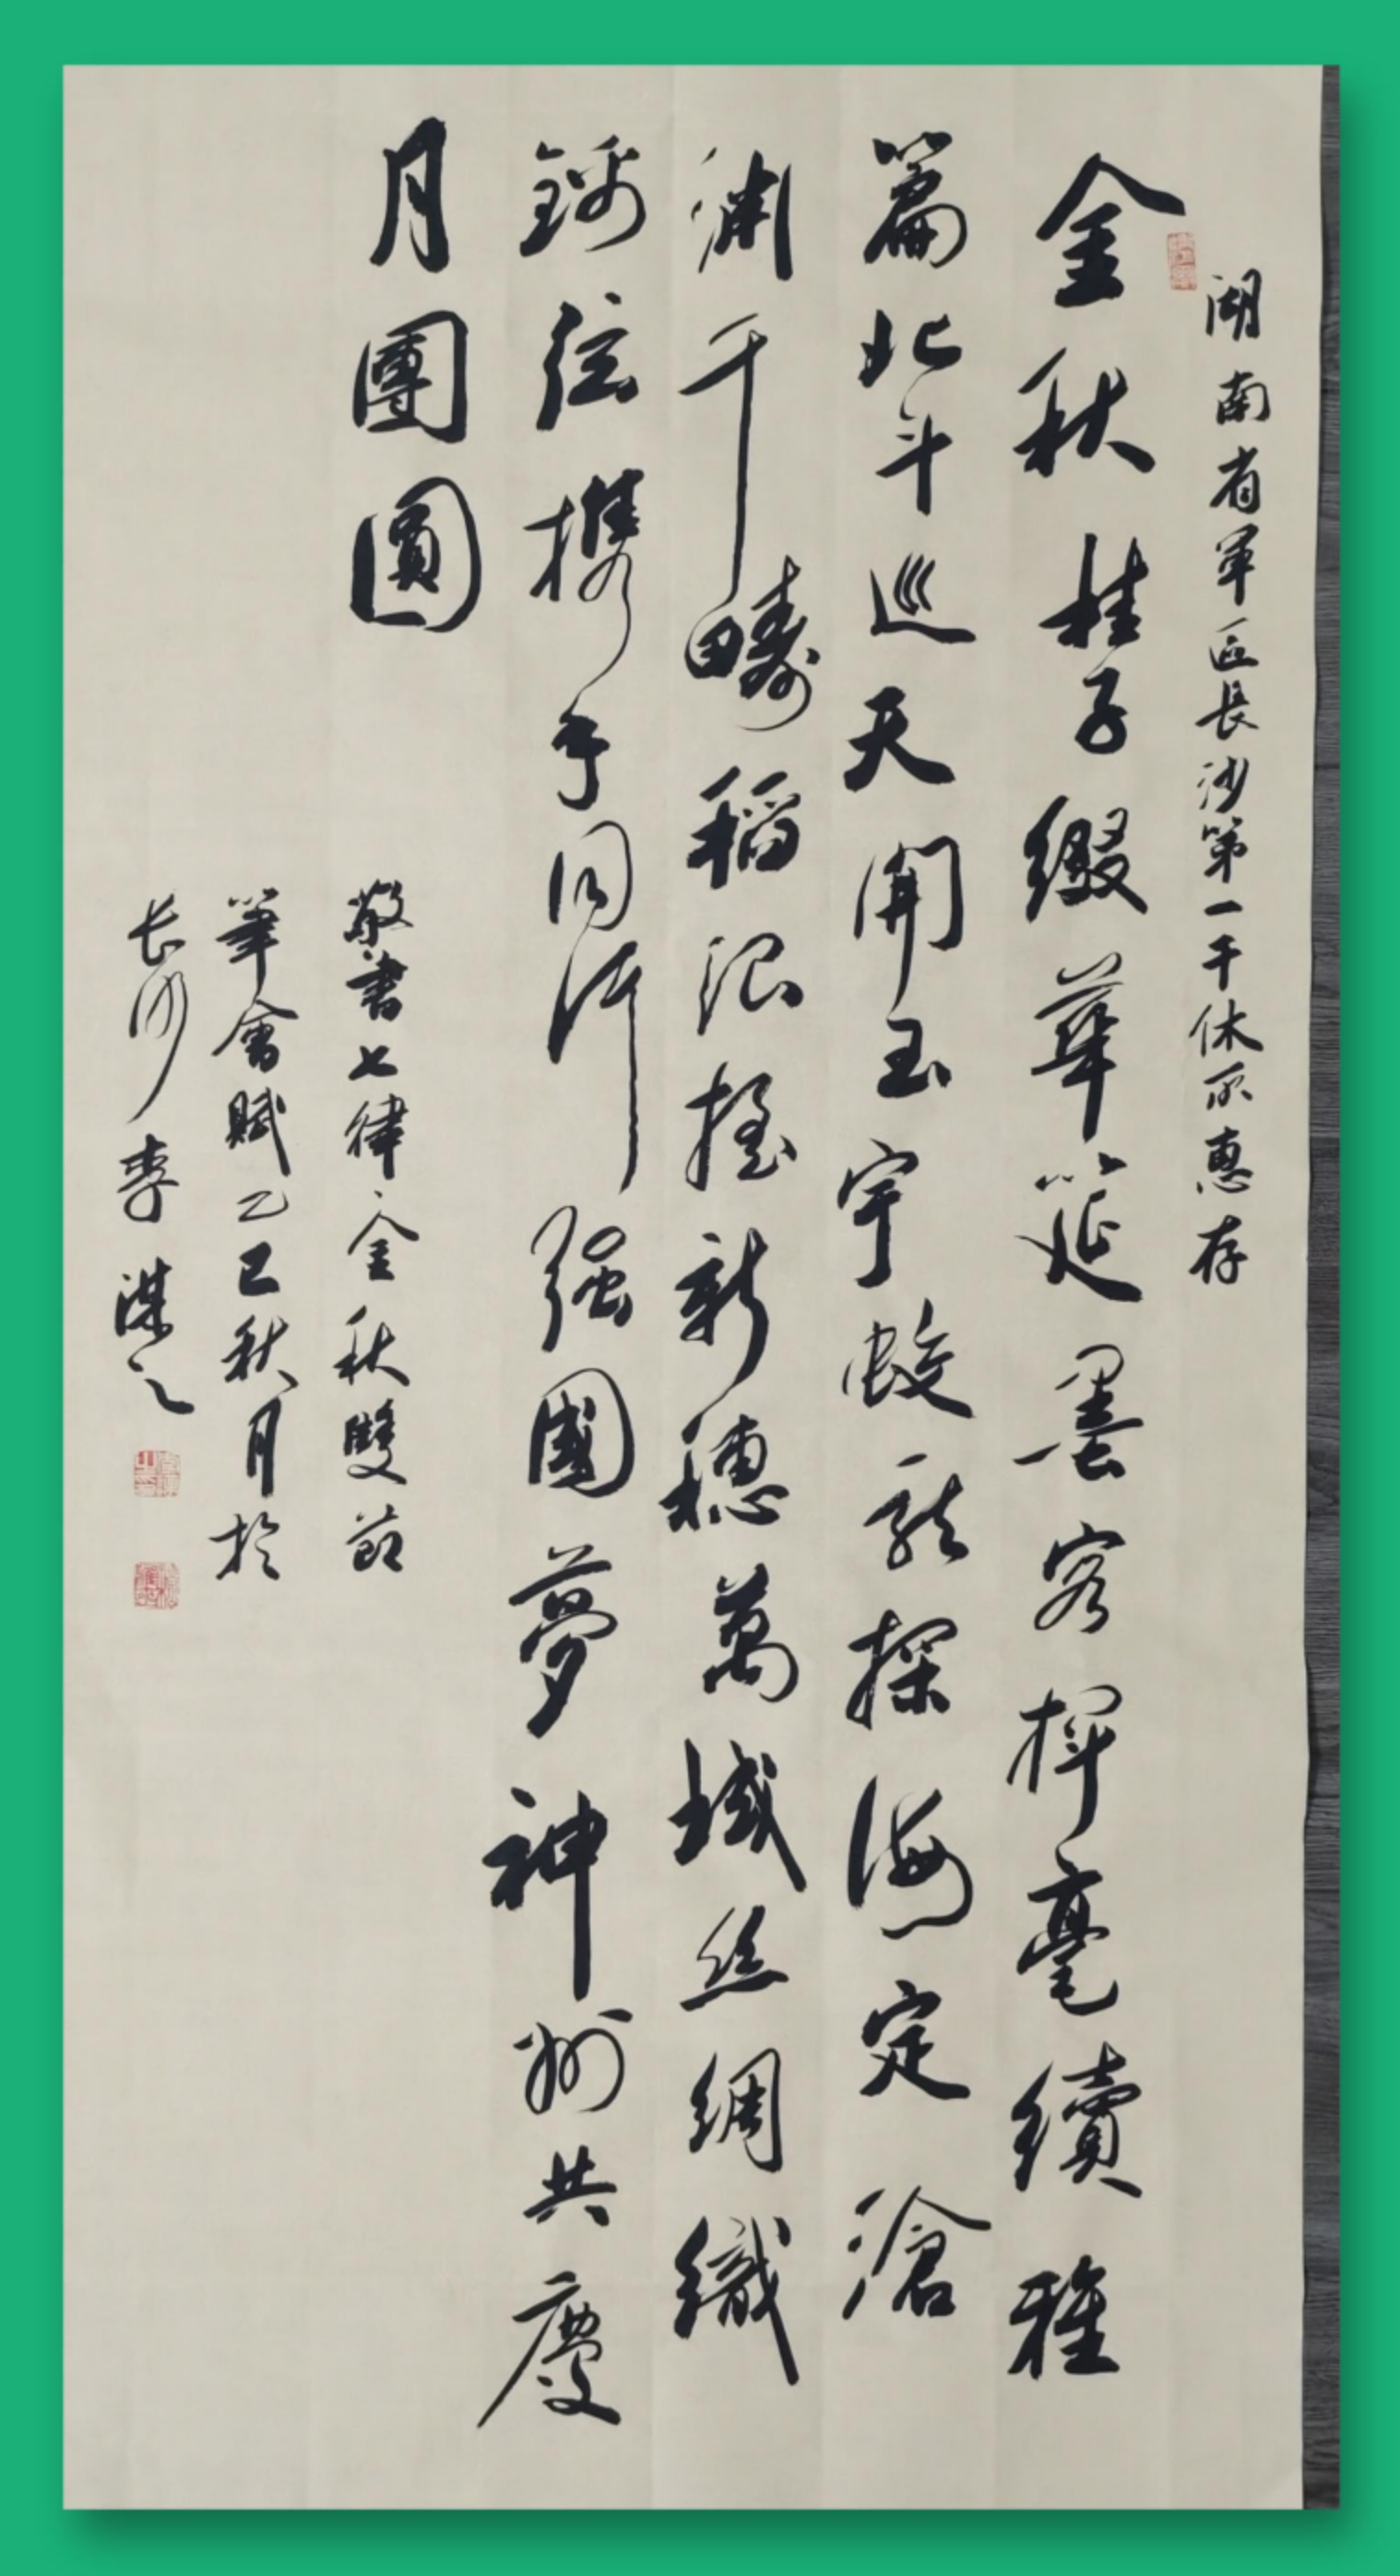 湖南省军区長沙第一干休所惠存
金秋桂子缀華筵墨客揮毫續雅
篇北斗巡天開玉宇蛟龙探海定滄
渊千疇稻浪摇新穗萬域丝綢織
錦弦携手同行强國夢神州共慶
月團圓
敬書七律金秋雙節
筆會賦乙巳秋月於
长沙李谋之